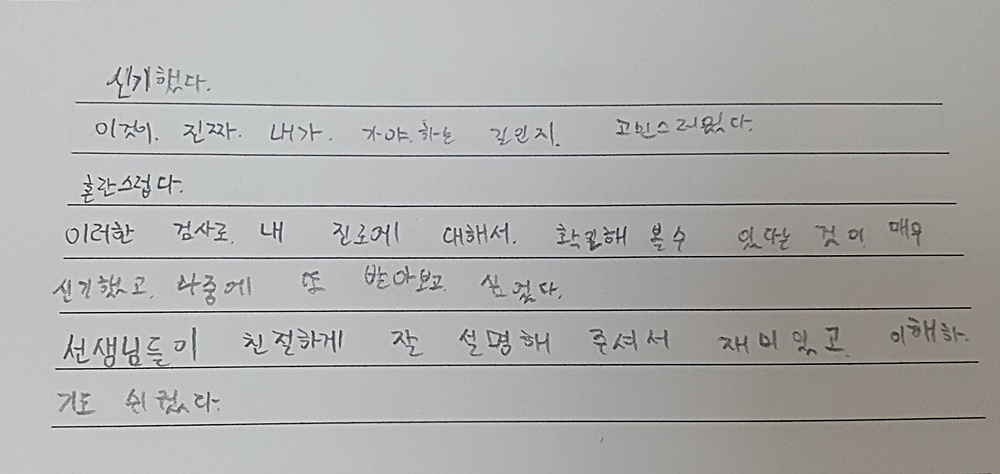 신기했다.
이것이. 진짜. 내가. 가야.하는 길인지. 고민스러웠다.
혼란스럽다.
이러한 검사로. 내 진로에 대해서. 확인해 볼수 있다는 것이 매우
신기했고. 나중에 또 받아보고. 싶었다.
선생님들이 친절하게 잘 설명해 주셔서 재미있고. 이해하.
기도 쉬웠다.